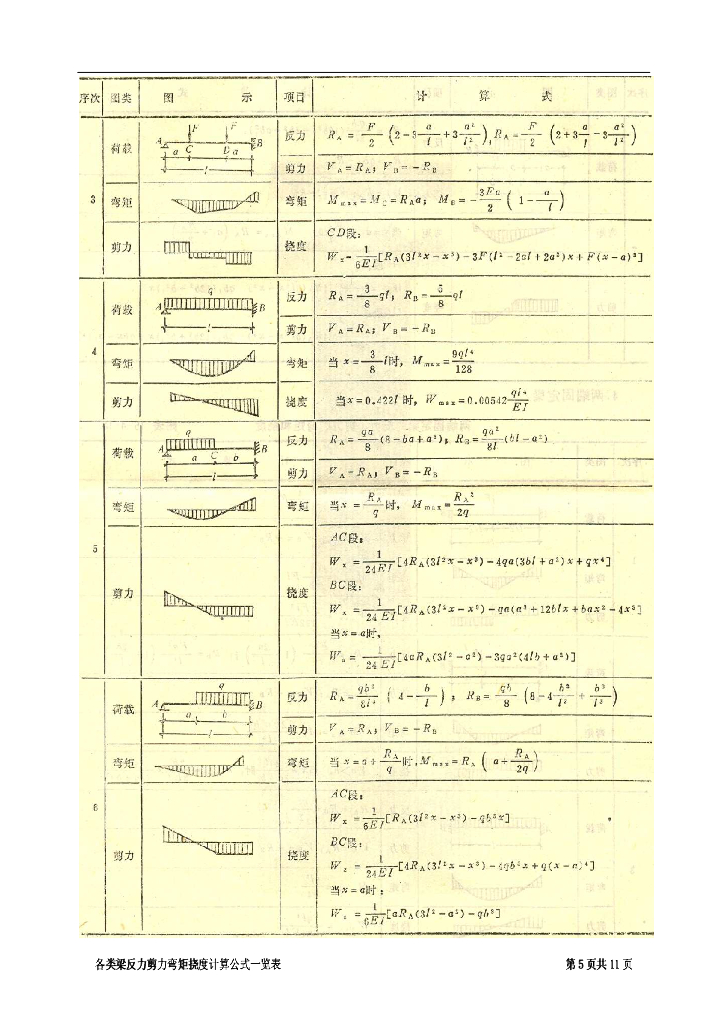 序次 图类 图 示 项目 计 算 式
3
荷载
F F
A a C D a B
l
反力 R_A = F/2 (2-3 a/l +3 a²/l²), R_B = F/2 (2+3 a/l -3 a²/l²)
剪力 V_A=R_A; V_B=-R_B
弯矩
弯矩 M_max=M_C=R_A a; M_B=-3Fa/2 (1- a/l)
剪力
挠度
CD段:
W_x= 1/6EI [R_A(3l²x-x³)-3F(l²-2al+2a²)x+F(x-a)³]
4
荷载
q
A B
l
反力 R_A= 3/8 ql; R_B= 5/8 ql
剪力 V_A=R_A; V_B=-R_B
弯矩
弯矩 当 x= 3/8 l时, M_max= 9ql²/128
剪力
挠度 当x=0.422l 时, W_max=0.00542 ql⁴/EI
5
荷载
q
A a C b B
l
反力 R_A= qa/8 (8-6a+a³); R_B= qa²/8l (6l-a²)
剪力 V_A=R_A; V_B=-R_B
弯矩
弯矩 当x = R_A/q 时, M_max= R_A²/2q
剪力
挠度
AC段:
W_x = 1/24EI [4R_A(3l²x-x³)-4qa(3bl+a²)x+qx⁴]
BC段:
W_x = 1/24EI [4R_A(3l²x-x³)-qa(a³+12blx+6ax²-4x³]
当x=a时,
W_x = 1/24EI [4aR_A(3l²-a²)-3qa²(4lb+a²)]
6
荷载
q
A a b B
l
反力 R_A= qb³/8l³ (4- b/l); R_B= qb/8 (8-4 b²/l² + b³/l³)
剪力 V_A=R_A; V_B=-R_B
弯矩
弯矩 当 x=a+ R_A/q 时, M_max=R_A (a+ R_A/2q)
剪力
挠度
AC段:
W_x = 1/6EI [R_A(3l²x-x³)-qb³x]
BC段:
W_x = 1/24EI [4R_A(3l²x-x³)-4qb³x+q(x-a)⁴]
当x=a时:
W_x = 1/6EI [aR_A(3l²-a²)-qb³]
各类梁反力剪力弯矩挠度计算公式一览表 第 5 页共 11 页